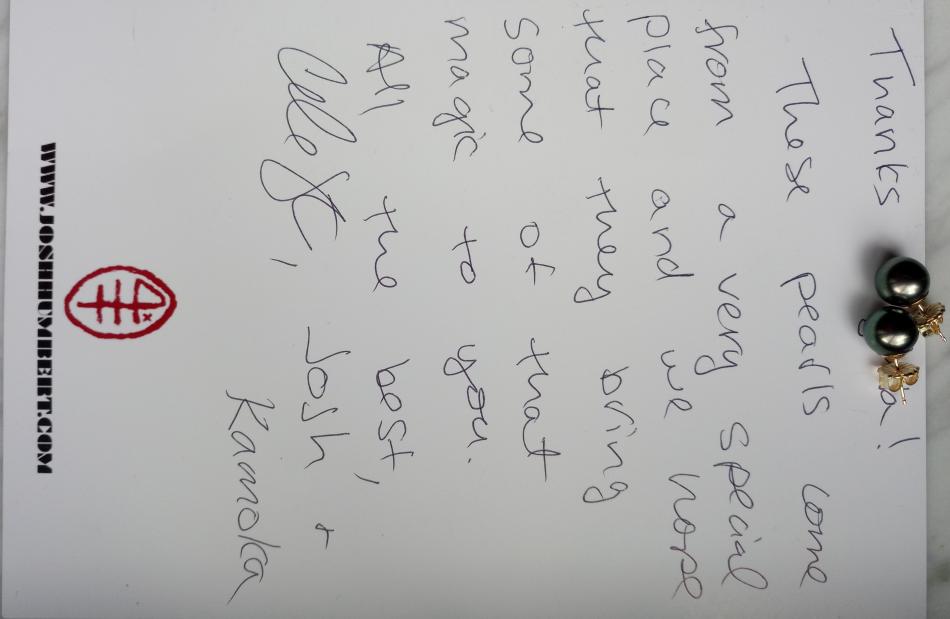 Thanks a!
These pearls come
from a very special
place and we hope
that they bring
some of that
magic to you.
All the best,
Celeste, Josh +
Kamoka
WWW.JOSHHUMBERT.COM